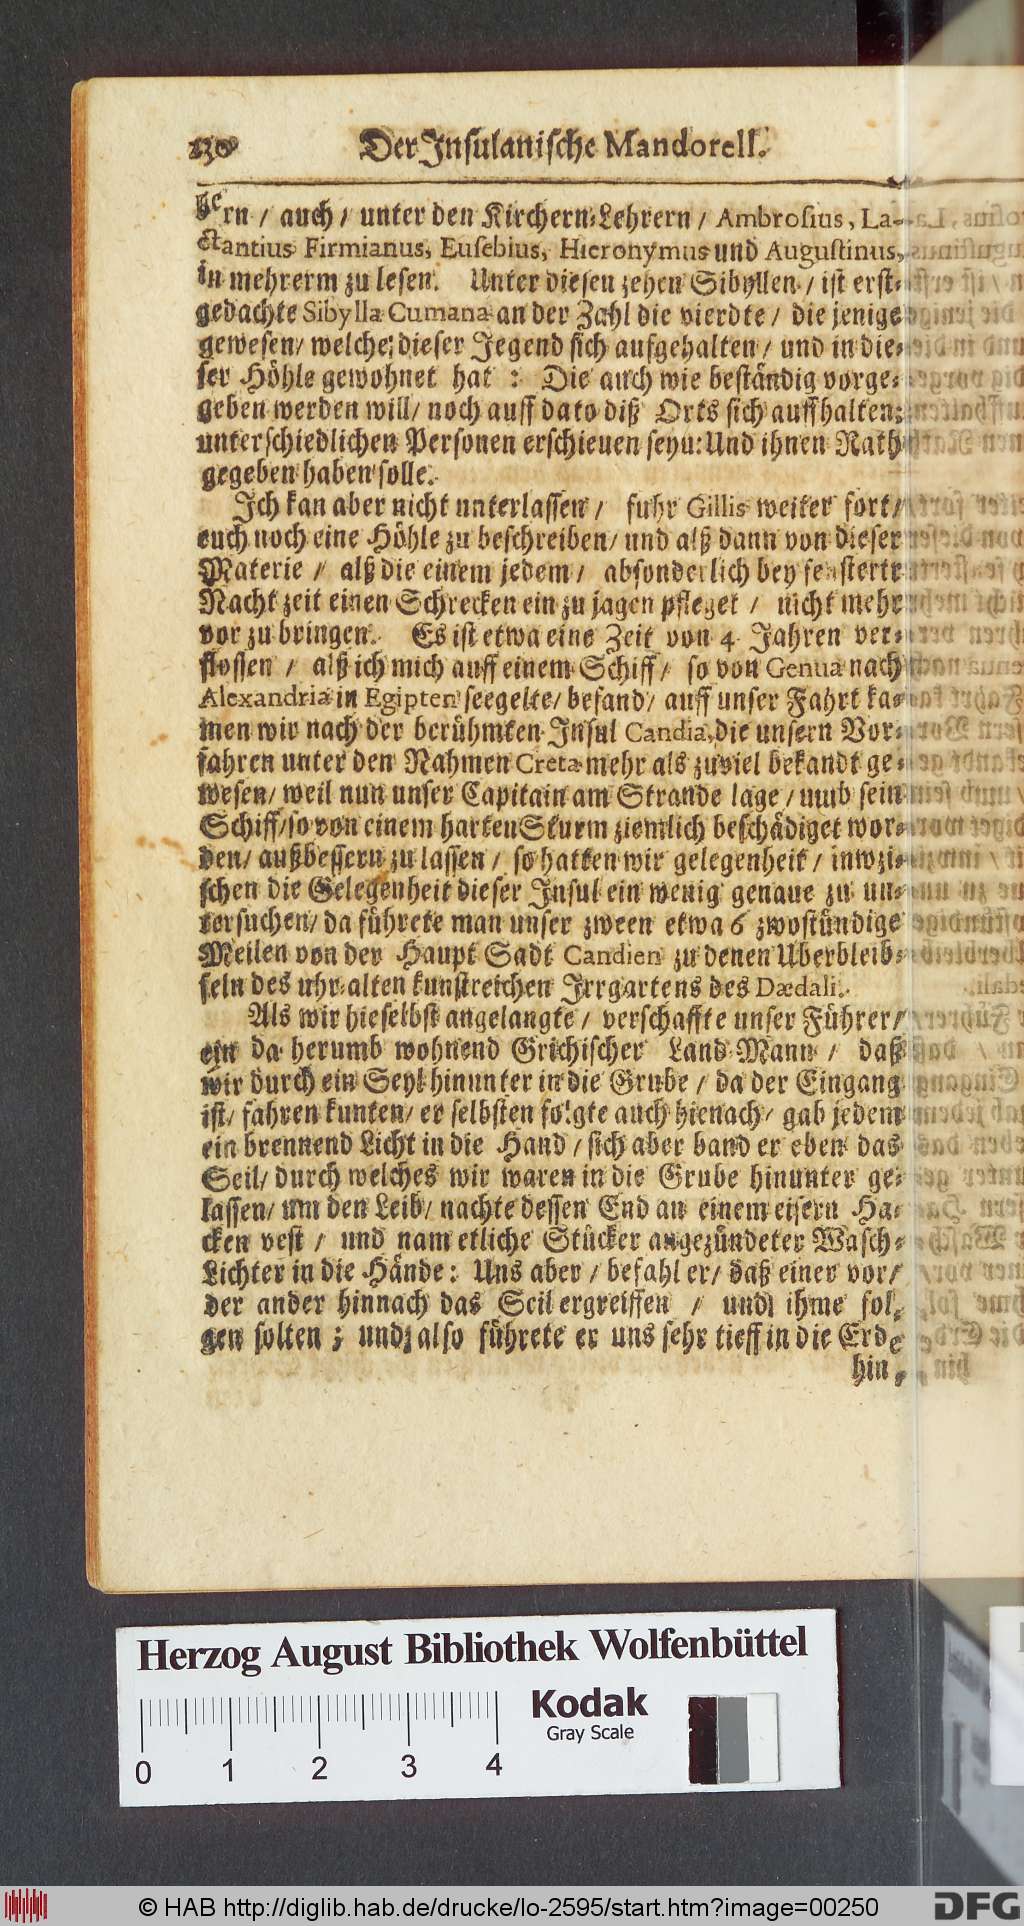 230 Der Insulanische Mandorell.
bern / auch / unter den Kirchern-Lehrern / Ambrosius, La-
ctantius Firmianus, Eusebius, Hieronymus und Augustinus,
in mehrerm zu lesen. Unter diesen zehen Sibyllen / ist erst-
gedachte Sibylla Cumana an der Zahl die vierdte / die jenige
gewesen / welche dieser Jegend sich aufgehalten / und in die-
ser Höhle gewohnet hat : Die auch wie beständig vorge-
geben werden will / noch auff dato diß Orts sich auffhalten:
unterschiedlichen Personen erschienen seyn: Und ihnen Rath
gegeben haben solle.
Ich kan aber nicht unterlassen / fuhr Gillis weiter fort /
euch noch eine Höhle zu beschreiben / und alß dann von dieser
Materie / alß die einem jedem / absonderlich bey fensterte
Nacht zeit einen Schrecken ein zu jagen pfleget / nicht mehr
vor zu bringen. Es ist etwa eine Zeit von 4. Jahren ver-
flossen / alß ich mich auff einem Schiff / so von Genua nach
Alexandria in Egipten seegelte / befand / auff unser Fahrt ka-
men wir nach der berühmten Insul Candia, die unsern Vor-
fahren unter den Nahmen Creta mehr als zuviel bekandt ge-
wesen / weil nun unser Capitain am Strande lage / umb sein
Schiff / so von einem harten Sturm ziemlich beschädiget wor-
den / außbessern zu lassen / so hatten wir gelegenheit / inwzi-
schen die Gelegenheit dieser Insul ein wenig genaue zu un-
tersuchen / da führete man unser zween etwa 6 zwostündige
Meilen von der Haupt Sadt Candien zu denen Uberbleib-
seln des uhr-alten kunstreichen Irrgartens des Dædali.
Als wir hieselbst angelangte / verschaffte unser Führer /
ein da herumb wohnend Grichischer Land-Mann / daß
wir durch ein Seyl hinunter in die Grube / da der Eingang
ist / fahren kunten / er selbsten folgte auch hienach / gab jedem
ein brennend Licht in die Hand / sich aber band er eben das
Seil / durch welches wir waren in die Grube hinunter ge-
lassen / um den Leib / nachte dessen End an einem eisern Ha-
cken vest / und nam etliche Stücker angezündeter Wasch-
Lichter in die Hände : Uns aber / befahl er / daß einer vor /
der ander hinnach das Seil ergreiffen / und ihme fol-
gen solten ; und also führete er uns sehr tieff in die Erde
hin-
Herzog August Bibliothek Wolfenbüttel
Kodak
Gray Scale
0 1 2 3 4
© HAB http://diglib.hab.de/drucke/lo-2595/start.htm?image=00250
DFG